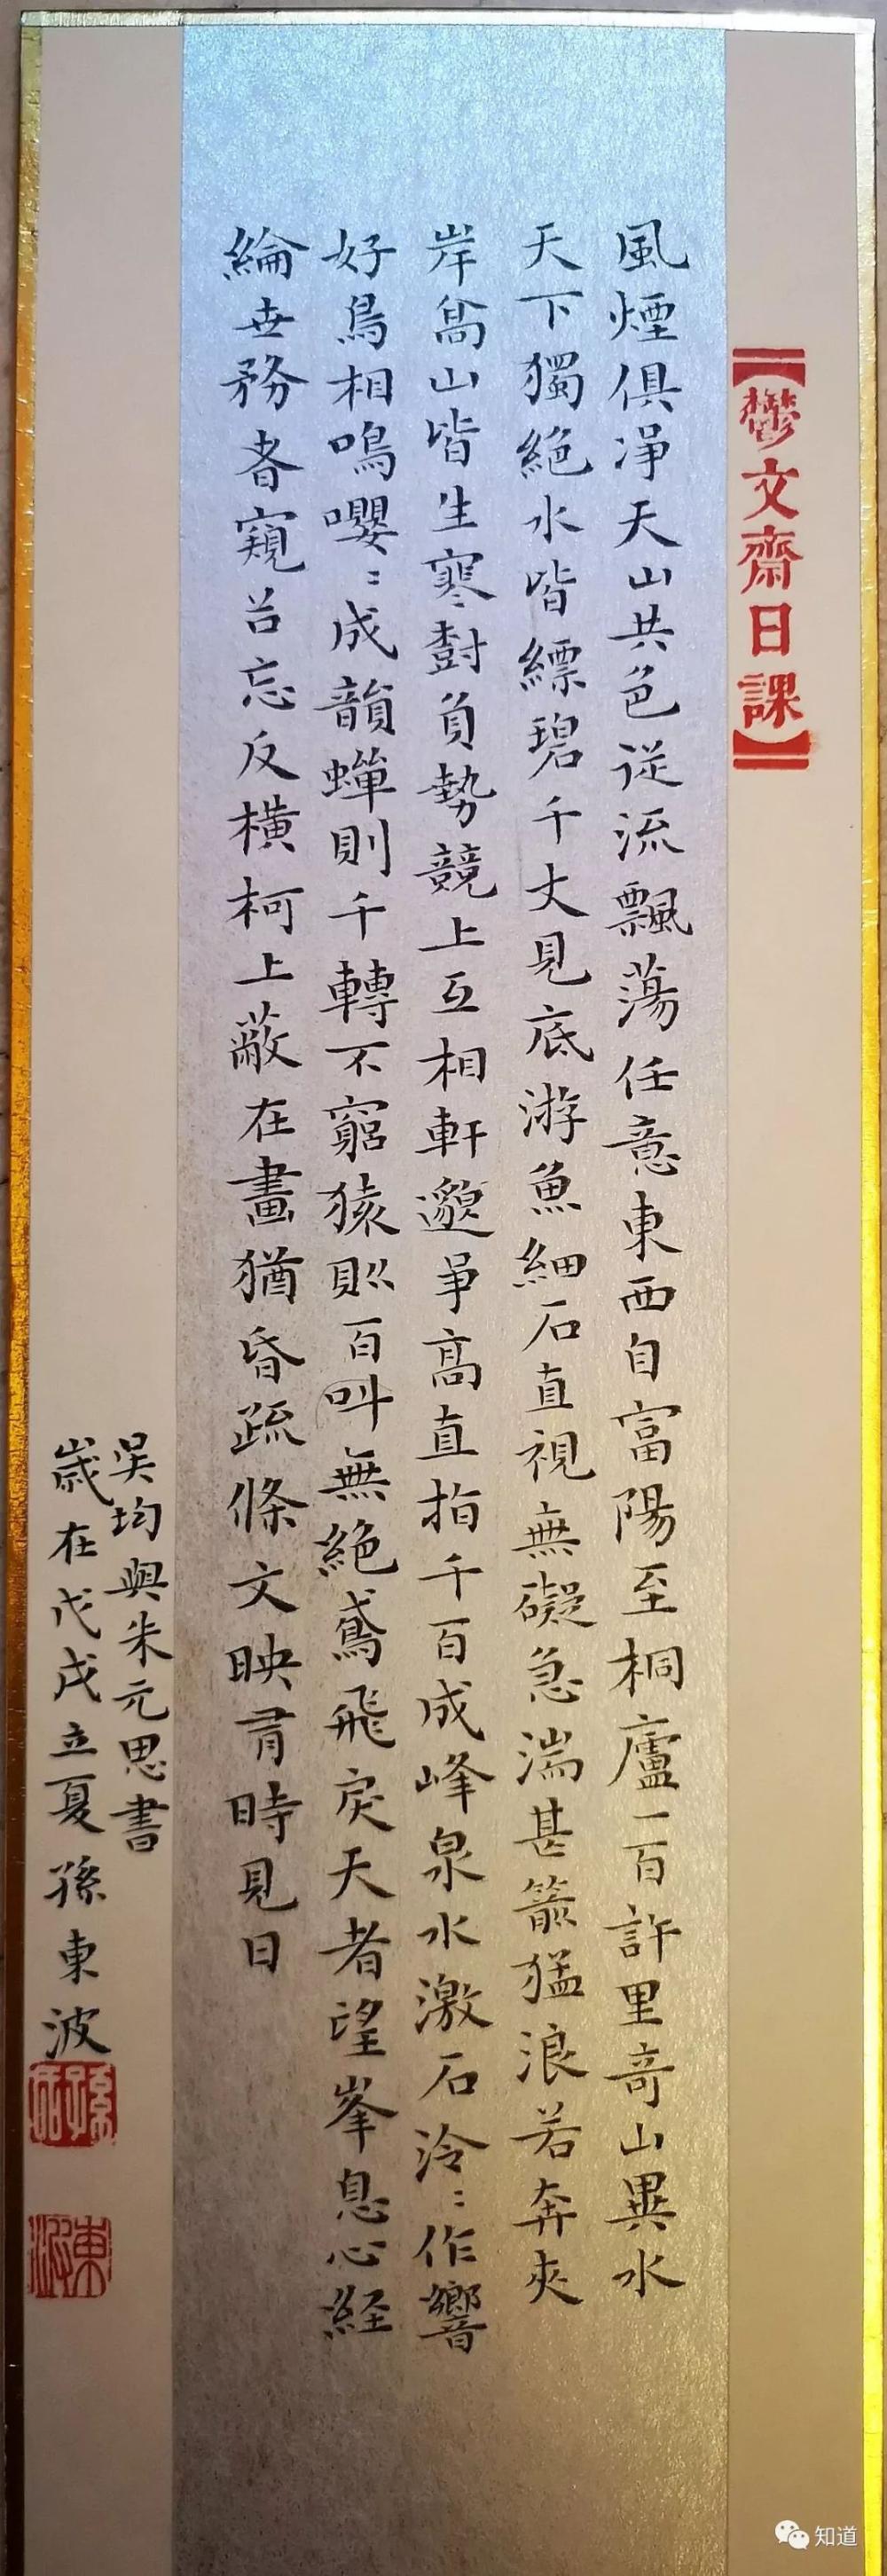 【鬱文齋日課】
風煙俱淨天山共色從流飄蕩任意東西自富陽至桐廬一百許里奇山異水
天下獨絕水皆縹碧千丈見底游魚細石直視無礙急湍甚箭猛浪若奔夾
岸高山皆生寒樹負勢競上互相軒邈爭高直指千百成峰泉水激石泠〻作響
好鳥相鳴嚶〻成韻蟬則千轉不窮猿則百叫無絕鳶飛戾天者望峯息心経
綸世務者窺谷忘反橫柯上蔽在晝猶昏疏條交映有時見日
吳均與朱元思書
歲在戊戌立夏孫東波
知道